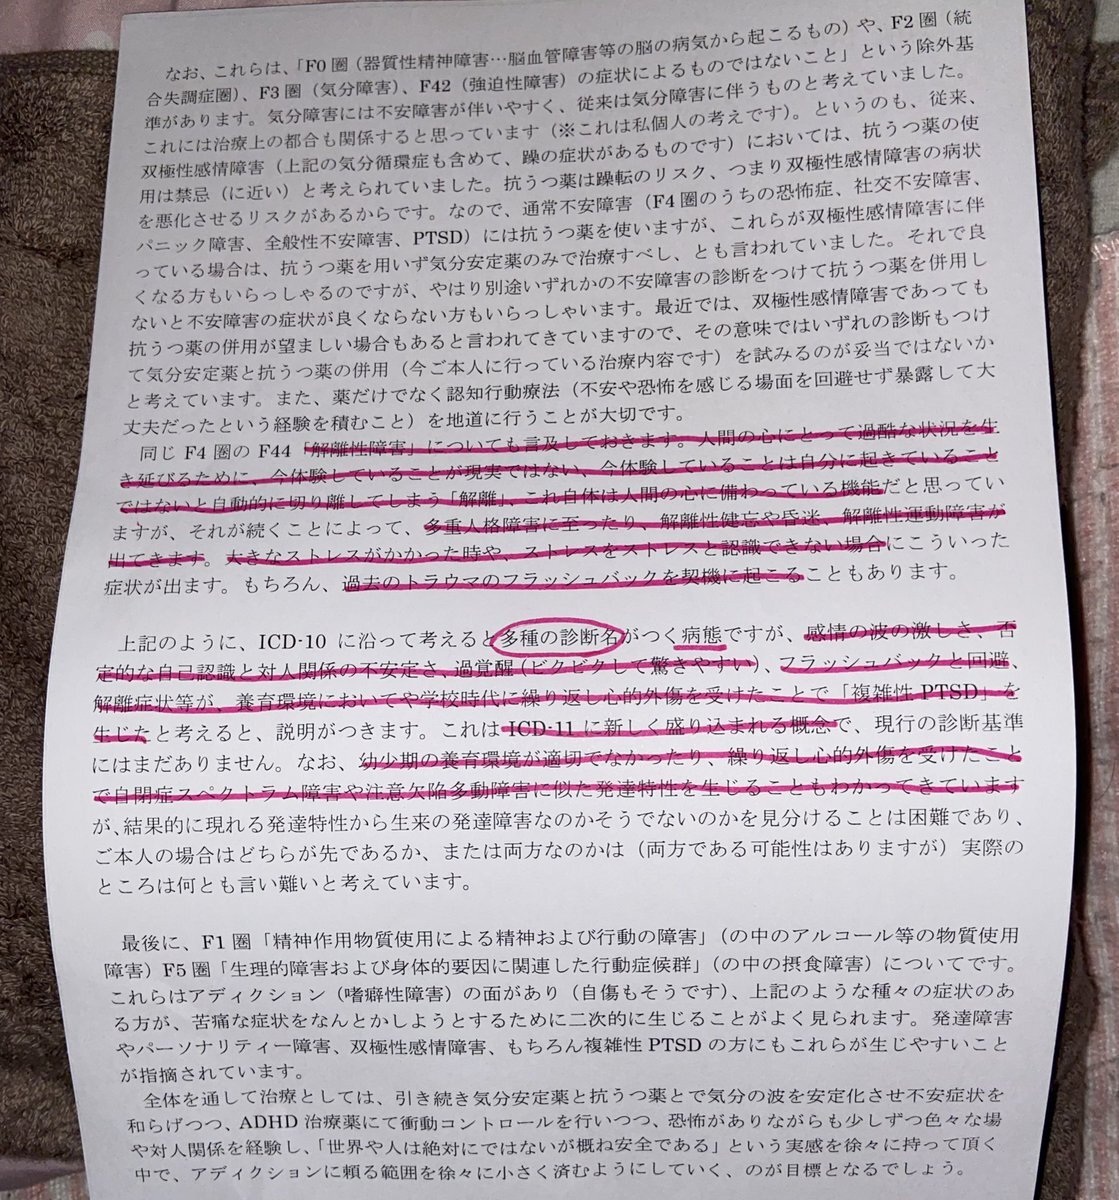 なお、これらは、「F0 圏（器質性精神障害…脳血管障害等の脳の病気から起こるもの）や、F2 圏（統
合失調症圏）、F3 圏（気分障害）、F42（強迫性障害）の症状によるものではないこと」という除外基
準があります。気分障害には不安障害が伴いやすく、従来は気分障害に伴うものと考えていました。
これには治療上の都合も関係すると思っています（※これは私個人の考えです）。というのも、従来、
双極性感情障害（上記の気分循環症も含めて、躁の症状があるものです）においては、抗うつ薬の使
用は禁忌（に近い）と考えられていました。抗うつ薬は躁転のリスク、つまり双極性感情障害の病状
を悪化させるリスクがあるからです。なので、通常不安障害（F4 圏のうちの恐怖症、社交不安障害、
パニック障害、全般性不安障害、PTSD）には抗うつ薬を使いますが、これらが双極性感情障害に伴
っている場合は、抗うつ薬を用いず気分安定薬のみで治療すべし、とも言われていました。それで良
くなる方もいらっしゃるのですが、やはり別途いずれかの不安障害の診断をつけて抗うつ薬を併用し
ないと不安障害の症状が良くならない方もいらっしゃいます。最近では、双極性感情障害であっても
抗うつ薬の併用が望ましい場合もあると言われてきていますので、その意味ではいずれの診断もつけ
て気分安定薬と抗うつ薬の併用（今ご本人に行っている治療内容です）を試みるのが妥当ではないか
と考えています。また、薬だけでなく認知行動療法（不安や恐怖を感じる場面を回避せず暴露して大
丈夫だったという経験を積むこと）を地道に行うことが大切です。
同じ F4 圏の F44「解離性障害」についても言及しておきます。人間の心にとって過酷な状況を生
き延びるために、今体験していることが現実ではない、今体験していることは自分に起きていること
ではないと自動的に切り離してしまう「解離」、これ自体は人間の心に備わっている機能だと思ってい
ますが、それが続くことによって、多重人格障害に至ったり、解離性健忘や昏迷、解離性運動障害が
出てきます。大きなストレスがかかった時や、ストレスをストレスと認識できない場合にこういった
症状が出ます。もちろん、過去のトラウマのフラッシュバックを契機に起こることもあります。
上記のように、ICD-10 に沿って考えると多種の診断名がつく病態ですが、感情の波の激しさ、否
定的な自己認識と対人関係の不安定さ、過覚醒（ビクビクして驚きやすい）、フラッシュバックと回避、
解離症状等が、養育環境においてや学校時代に繰り返し心的外傷を受けたことで「複雑性 PTSD」を
生じたと考えると、説明がつきます。これは ICD-11 に新しく盛り込まれる概念で、現行の診断基準
にはまだありません。なお、幼少期の養育環境が適切でなかったり、繰り返し心的外傷を受けたこと
で自閉症スペクトラム障害や注意欠陥多動障害に似た発達特性を生じることもわかってきています
が、結果的に現れる発達特性から生来の発達障害なのかそうでないのかを見分けることは困難であり、
ご本人の場合はどちらが先であるか、または両方なのかは（両方である可能性はありますが）実際の
ところは何とも言い難いと考えています。
最後に、F1 圏「精神作用物質使用による精神および行動の障害」（の中のアルコール等の物質使用
障害）F5 圏「生理的障害および身体的要因に関連した行動症候群」（の中の摂食障害）についてです。
これらはアディクション（嗜癖性障害）の面があり（自傷もそうです）、上記のような種々の症状のあ
る方が、苦痛な症状をなんとかしようとするために二次的に生じることがよく見られます。発達障害
やパーソナリティー障害、双極性感情障害、もちろん複雑性 PTSD の方にもこれらが生じやすいこと
が指摘されています。
全体を通して治療としては、引き続き気分安定薬と抗うつ薬とで気分の波を安定化させ不安症状を
和らげつつ、ADHD 治療薬にて衝動コントロールを行いつつ、恐怖がありながらも少しずつ色々な場
や対人関係を経験し、「世界や人は絶対にではないが概ね安全である」という実感を徐々に持って頂く
中で、アディクションに頼る範囲を徐々に小さく済むようにしていく、のが目標となるでしょう。